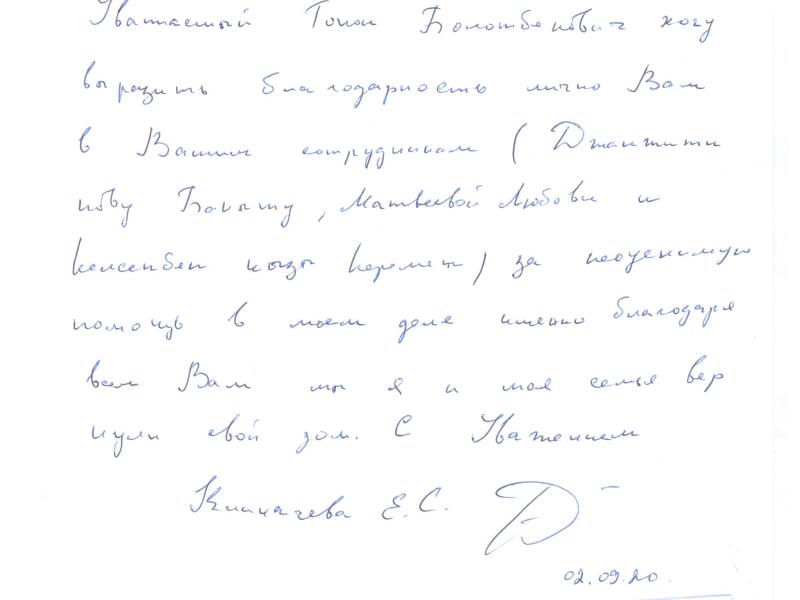 Уважаемый Токон Болотбекович хочу
выразить благодарность лично Вам
в Вашим сотрудникам ( Джантити
нову Бакыту , Матвеевой Любови и
келсенбек кызы Керемет ) за неоценимую
помощь в моем деле именно благодаря
всем Вам мы я и моя семья вер
нули свой дом. С Уважением
Е.С.
02.09.20.